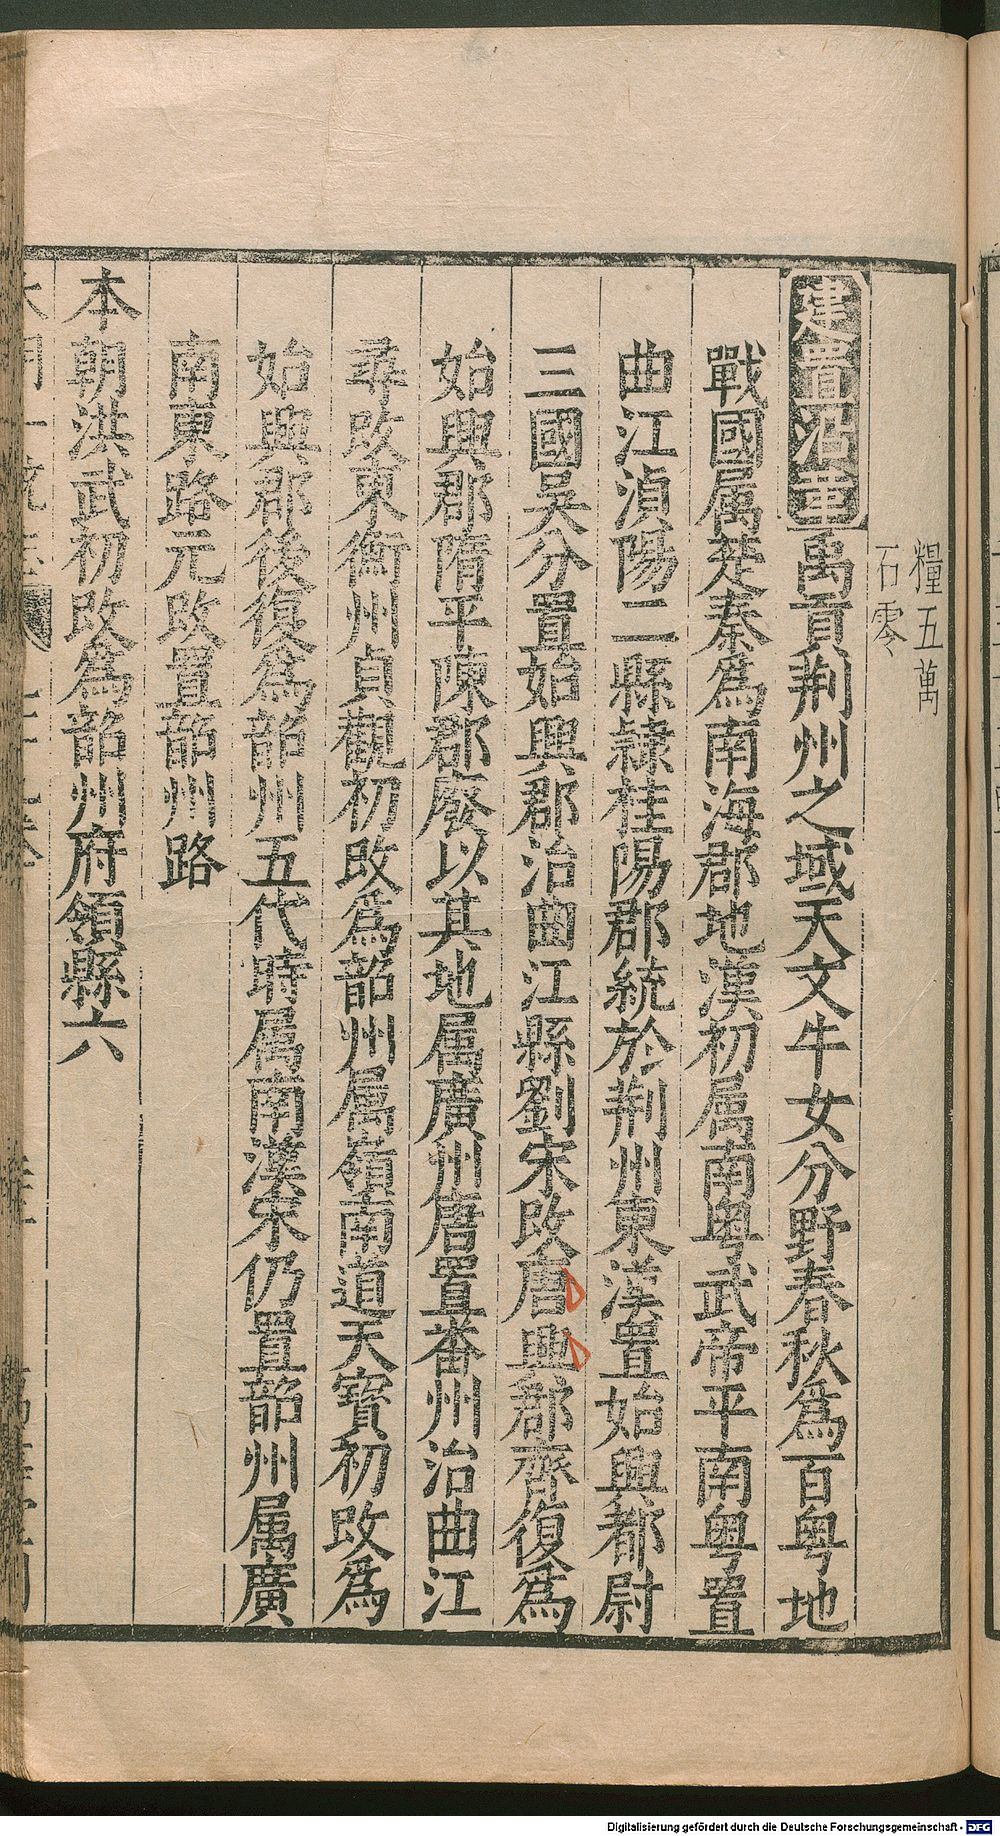 糧五萬
石零
建置沿革禹貢荆州之域天文牛女分野春秋爲百粤地
戰國属楚秦爲南海郡地漢初属南粤武帝平南粤置
曲江湞陽二縣隷桂陽郡統於荆州東漢置始興都尉
三國吴分置始興郡治曲江縣劉宋改廣興郡齊復爲
始興郡隋平陳郡廢以其地属廣州唐置番州治曲江
尋改東衡州貞觀初改爲韶州属嶺南道天寳初改爲
始興郡後復爲韶州五代時属南漢宋仍置韶州属廣
南東路元改置韶州路
本朝洪武初改爲韶州府領縣六
Digitalisierung gefördert durch die Deutsche Forschungsgemeinschaft - DFG